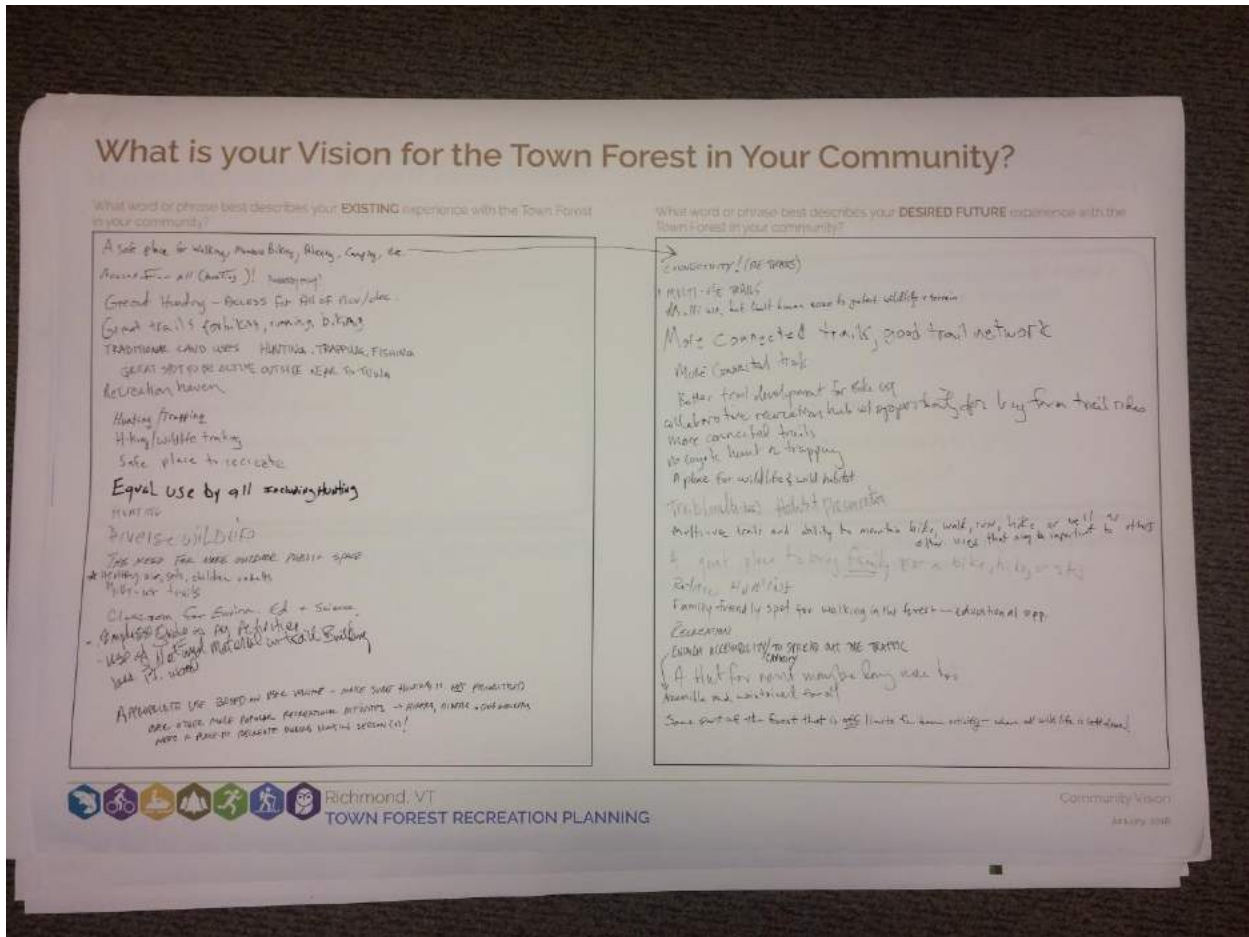 What is your Vision for the Town Forest in Your Community?
What word or phrase best describes your EXISTING experience with the Town Forest
in your community?
A safe place for walking, Mountain Biking, , Camping, etc.
all (hunting)!
Great Hunting - Access for All of Nov/dec.
Great trails for hiking, running, biking
TRADITIONAL LAND USES HUNTING, TRAPPING, FISHING
GREAT SPOT TO BE ACTIVE OUTSIDE NEAR TO TOWN
Recreation haven
Hunting/Trapping
Hiking/wildlife tracking
Safe place to recreate
Equal use by all including Hunting
HUNTING
Diverse
THE NEED FOR MORE OUTDOOR PUBLIC SPACE
* Healthy , children + adults
Multi-use trails
Classroom for Environ. Ed + Science
- as Activities
- use of Natural Material in trail Building
use P.T. wood
APPROPRIATE USE BASED ON USER VOLUME - MAKE SURE HUNTING IS NOT PRIORITIZED
OVER OTHER MORE POPULAR RECREATIONAL ACTIVITIES → HIKERS, BIKERS + DOG WALKERS
NEED A PLACE TO RECREATE DURING HUNTING SEASON(S)!
What word or phrase best describes your DESIRED FUTURE experience with the
Town Forest in your community?
CONNECTIVITY! (RE TRAILS)
MULTI-USE TRAILS
Multi use, but limit human access to protect wildlife + terrain
More Connected trails, good trail network
More Connected trails
Better trail development for Bike use
collaborative recreation hub w/ opportunity for long form trail rides
more connected trails
no coyote hunt or trapping
A place for wildlife & wild habitat
Habitat Preservation
Multi-use trails and ability to mountain bike, walk, run, hike, as well as
other uses that may be important to others
A great place to bring family for a bike, hike, or ski
Family friendly spot for walking in the forest - educational opp.
RECREATION
ENOUGH ACCESSIBILITY/CAPACITY TO SPREAD OUT THE TRAFFIC
A Hut for rent maybe long use too
Accessible and maintained for all
Some part of the forest that is off limits to human activity - where all wildlife is left alone!
Richmond, VT
TOWN FOREST RECREATION PLANNING
Community Vision
January 2018